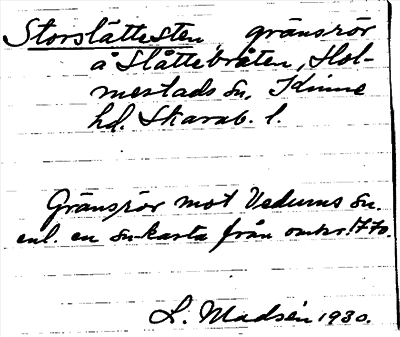 Storslättesten, gränsrör
å Slättebråten, Hol-
mestads sn, Kinne
hd. Skarab. l.
Gränsrör mot Vedums sn.
enl. en sn-karta från omkr. 1770.
L. Madsén 1930.